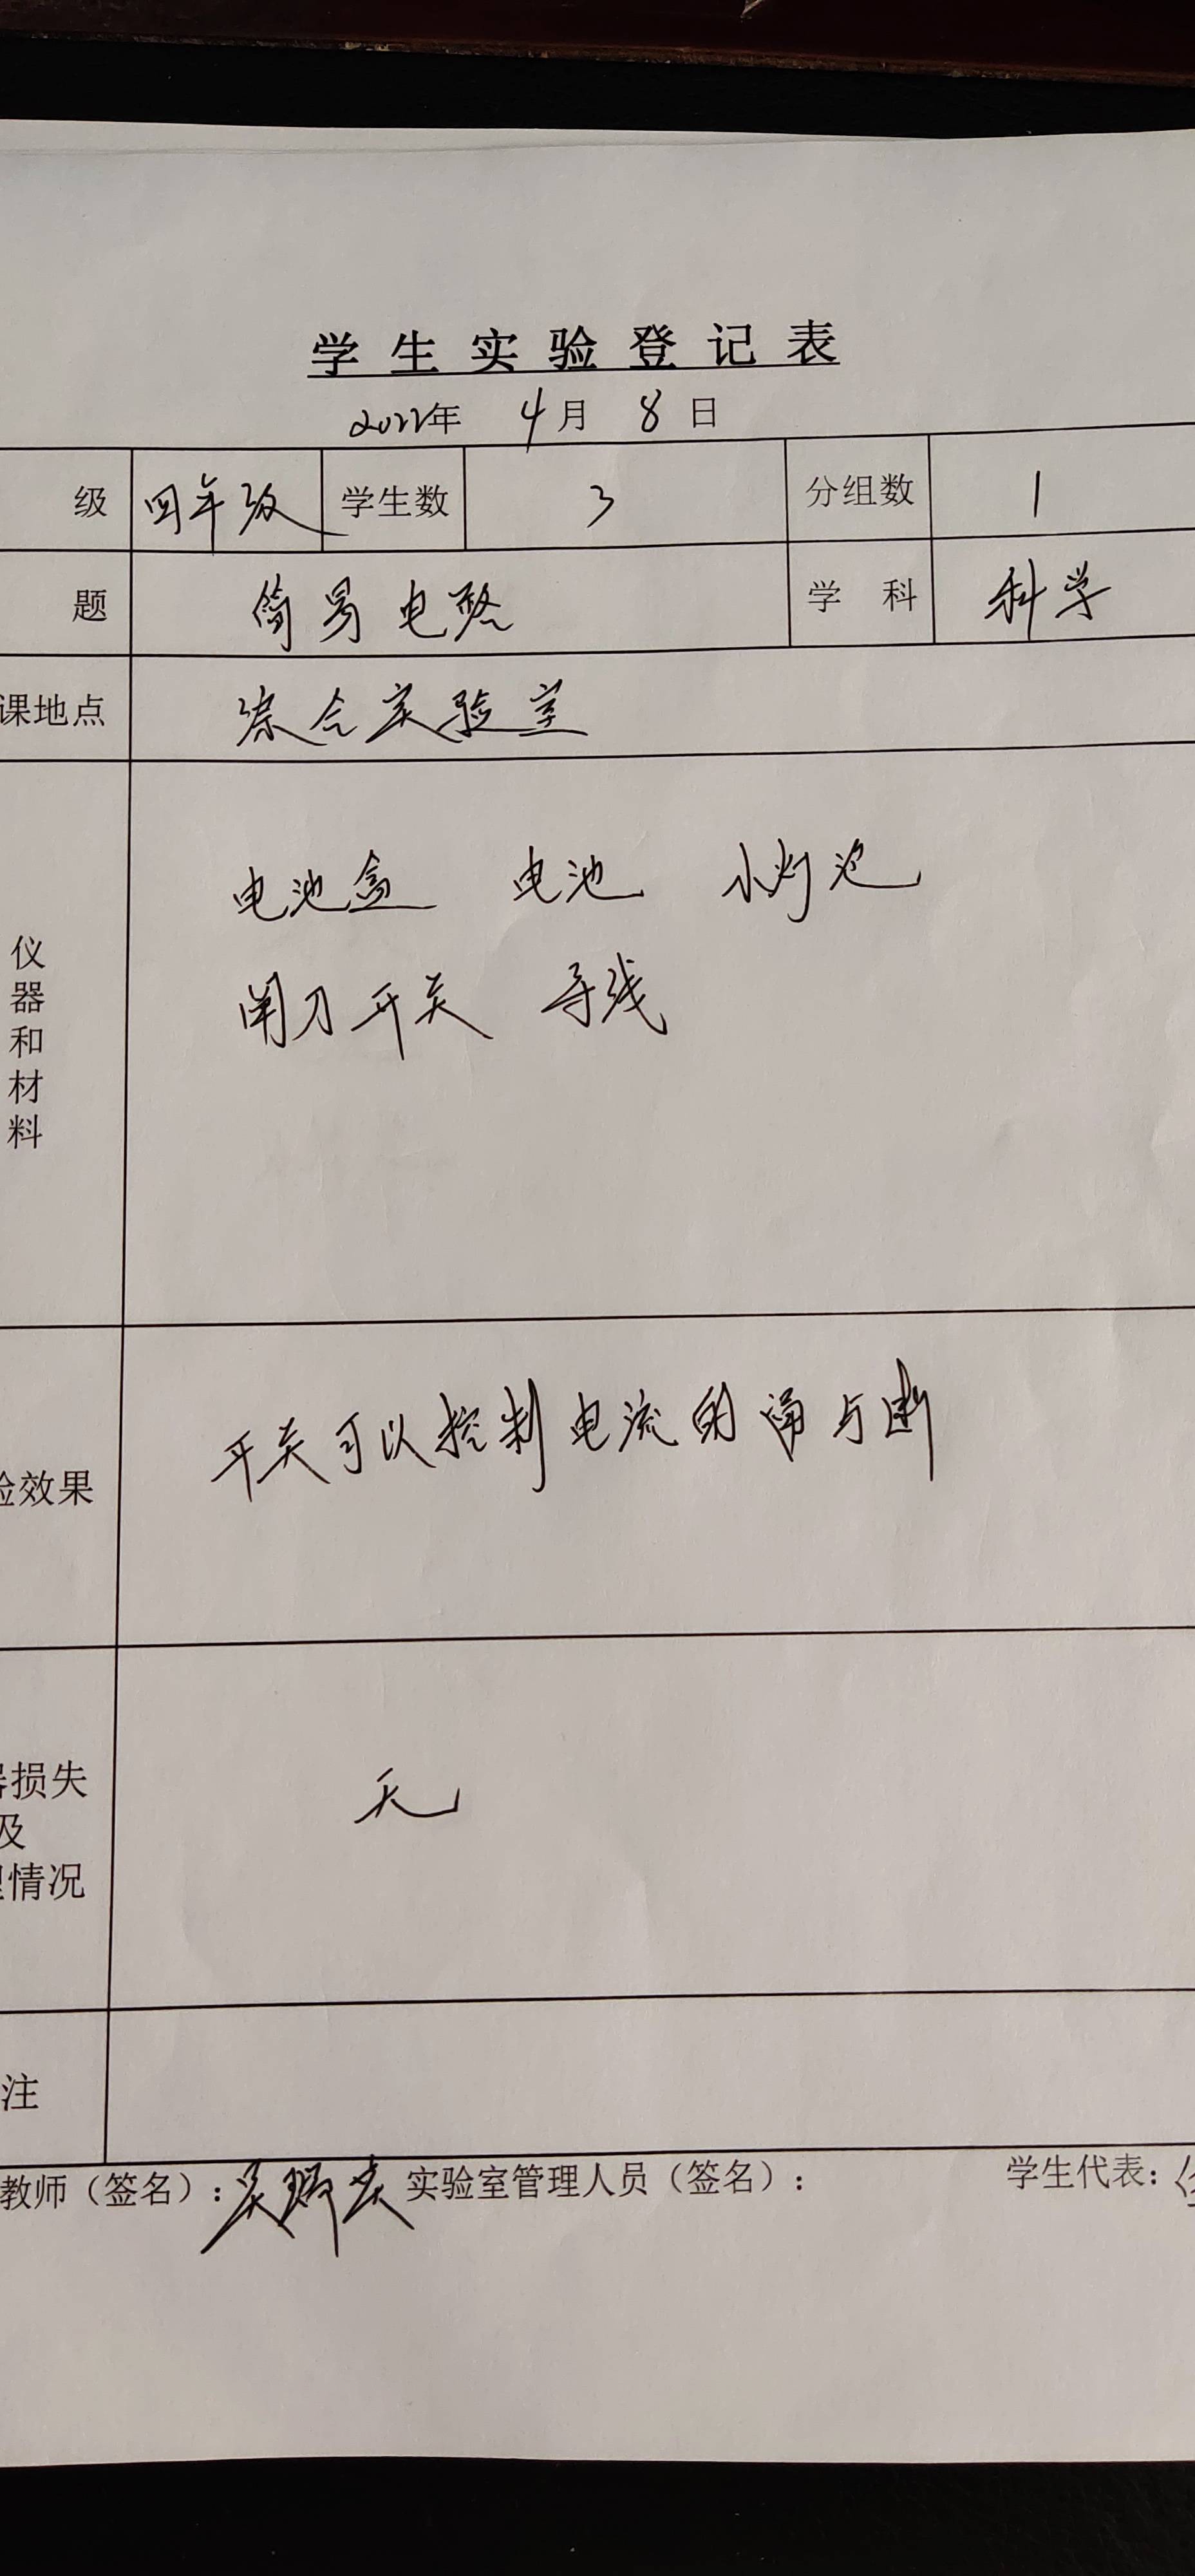 学生实验登记表
2022年 4月 8日
级 四年级 学生数 3 分组数 1
题 简易电路 学 科 科学
课地点 综合实验室
仪器和材料
电池盒 电池 小灯泡
闸刀开关 导线
验效果 开关可以控制电流的通与断
器损失
及
理情况
无
注
教师（签名）： 实验室管理人员（签名）： 学生代表：